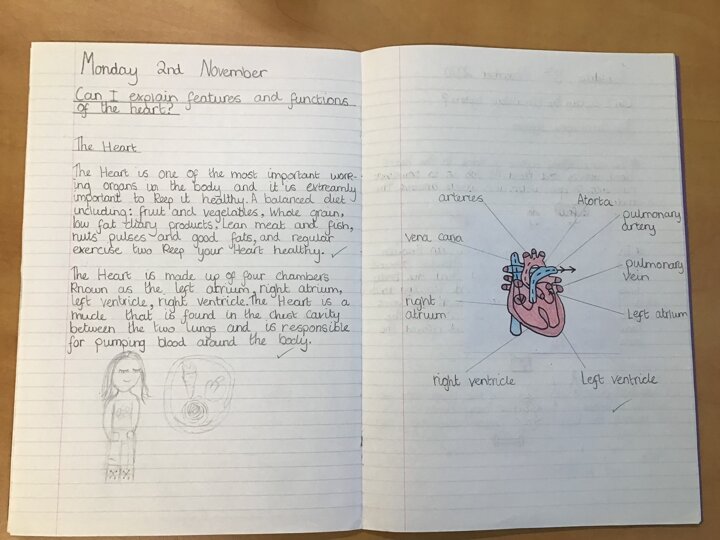 Monday 2nd November
Can I explain features and functions
of the heart?
The Heart
The Heart is one of the most important work-
ing organs in the body and it is extreamly
important to keep it healthy. A balanced diet
including: fruit and vegetables, whole grain,
low fat diary products, Lean meat and fish,
nuts pulses and good fats, and regular
exercise two keep your Heart healthy.
The Heart is made up of four chambers
known as the left atrium, right atrium,
left ventricle, right ventricle. The Heart is a
mucle that is found in the chest cavity
between the two lungs and is responsible
for pumping blood around the body.
arteries
Aorta
pulmonary
artery
vena cava
pulmonary
vein
right
atrium
Left atrium
right ventricle
Left ventricle